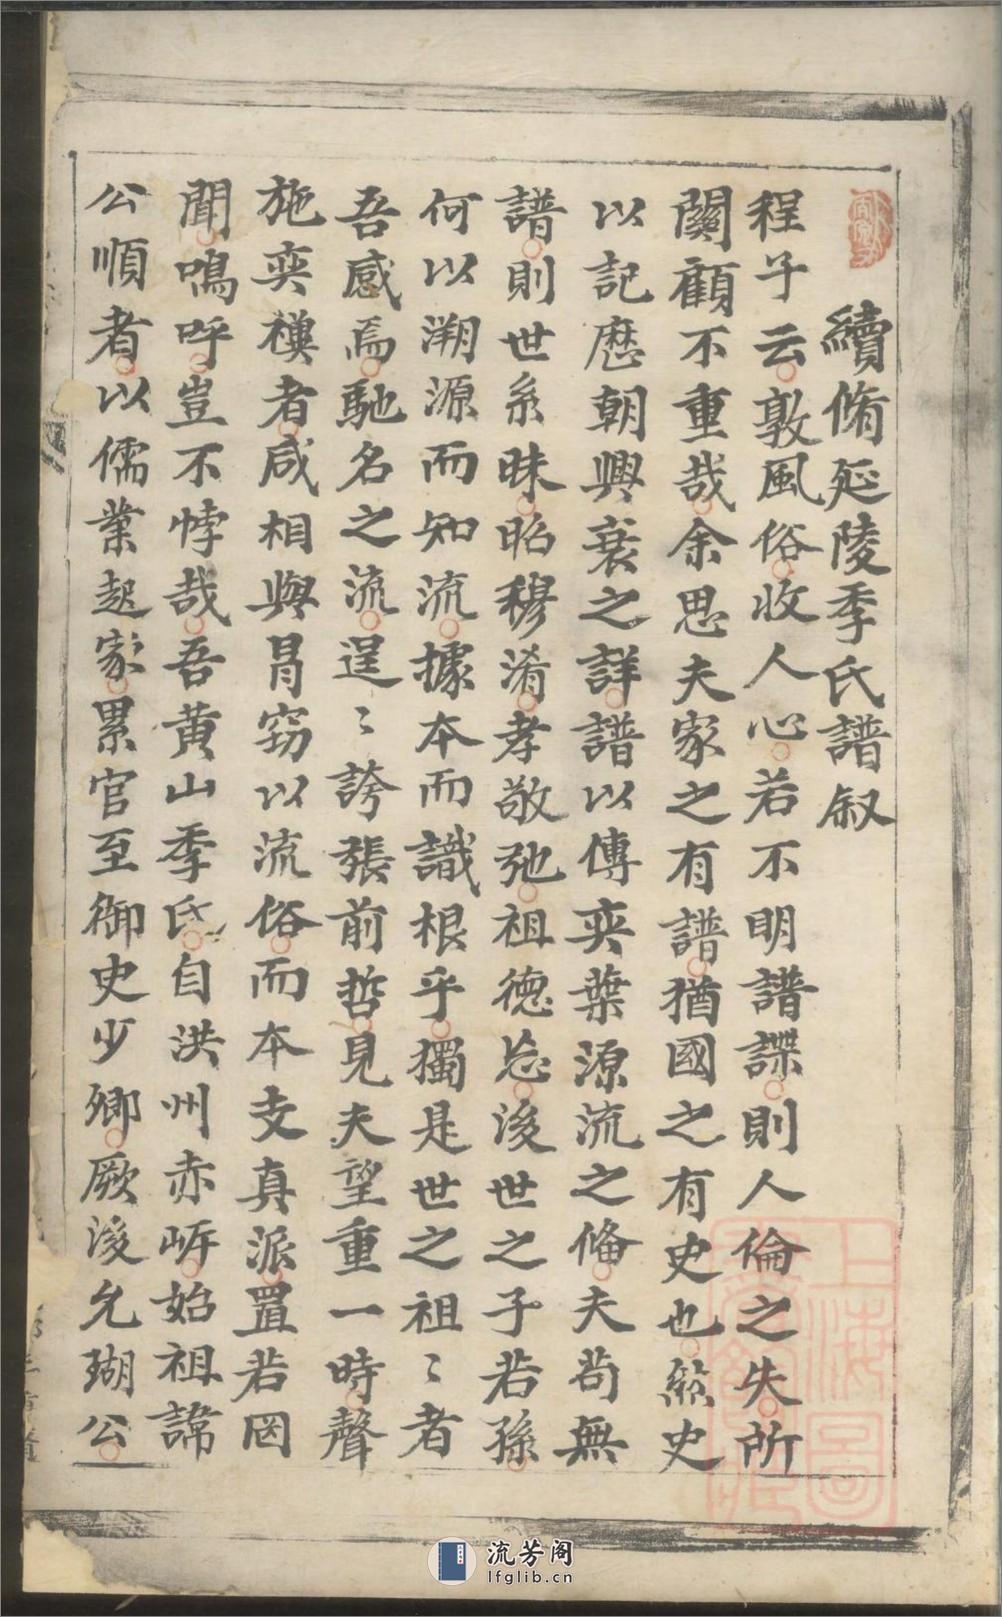 續脩延陵季氏譜叙
程子云敦風俗收人心若不明譜諜則人倫之失所
闗顧不重哉余思夫家之有譜猶國之有史也然史
以記歷朝興衰之詳譜以傳奕葉源流之俻夫茍無
譜則世系昧昭穆淆孝敬弛祖德忘後世之子若孫
何以溯源而知流據本而識根乎獨是世之祖〻者
吾感焉馳名之流逞〻誇張前哲見夫望重一時聲
施奕禩者咸相與冒窃以流俗而本支真派置若罔
聞嗚呼豈不悖哉吾黄山季氏自洪州赤岸始祖諱
公順者以儒業起家累官至御史少卿厥後允瑚公
上海圖書館藏
流芳阁
lfglib.cn